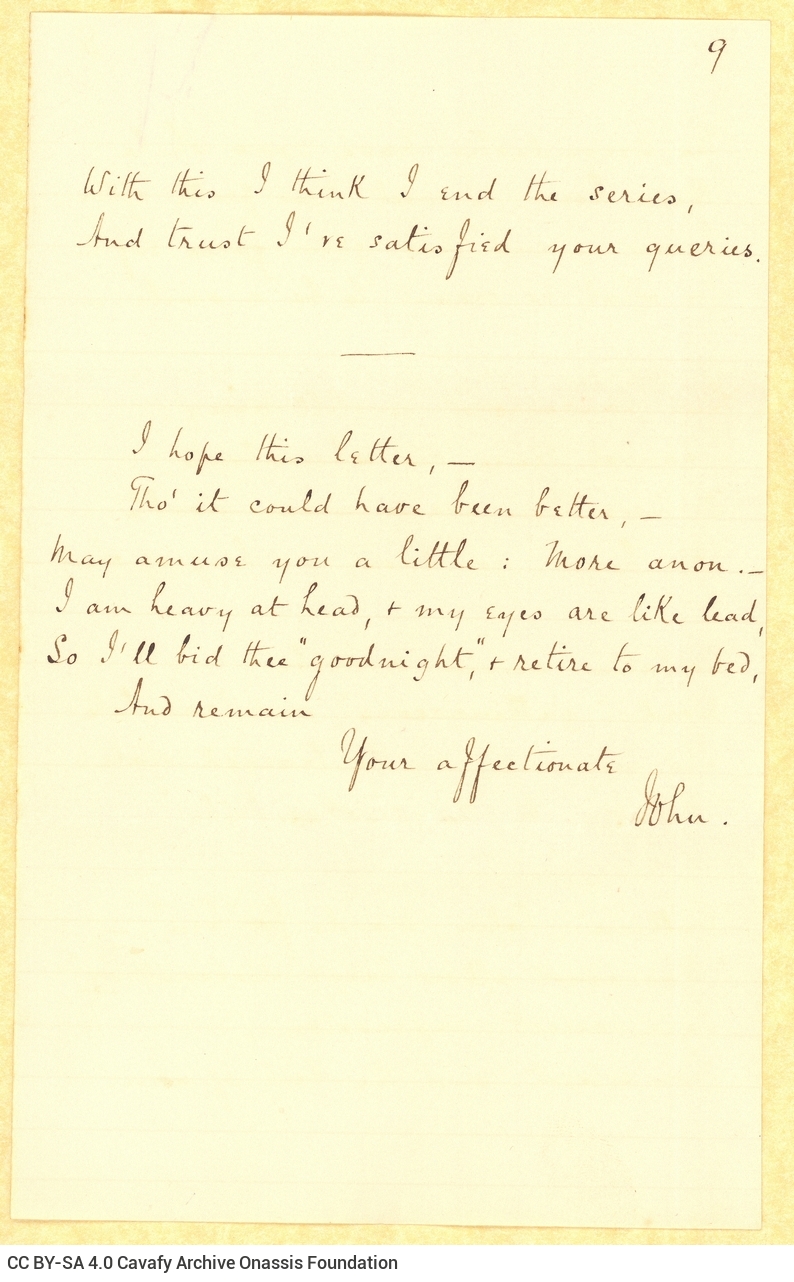 9
With this I think I end the series,
And trust I've satisfied your queries.
I hope this letter, —
Tho' it could have been better, —
May amuse you a little : More anon. —
I am heavy at head, & my eyes are like lead,
So I'll bid thee "goodnight," & retire to my bed,
And remain
Your affectionate
John.
CC BY-SA 4.0 Cavafy Archive Onassis Foundation